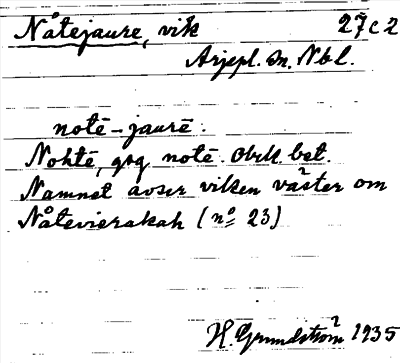 Nåtejaure, vik 27c2
Arjepl. sn. Nbl.
notē-jaurē.
Nohtē, gg. notē. Obek. bet.
Namnet avser viken väster om
Nåtevierakah (no 23)
H. Grundström 1935